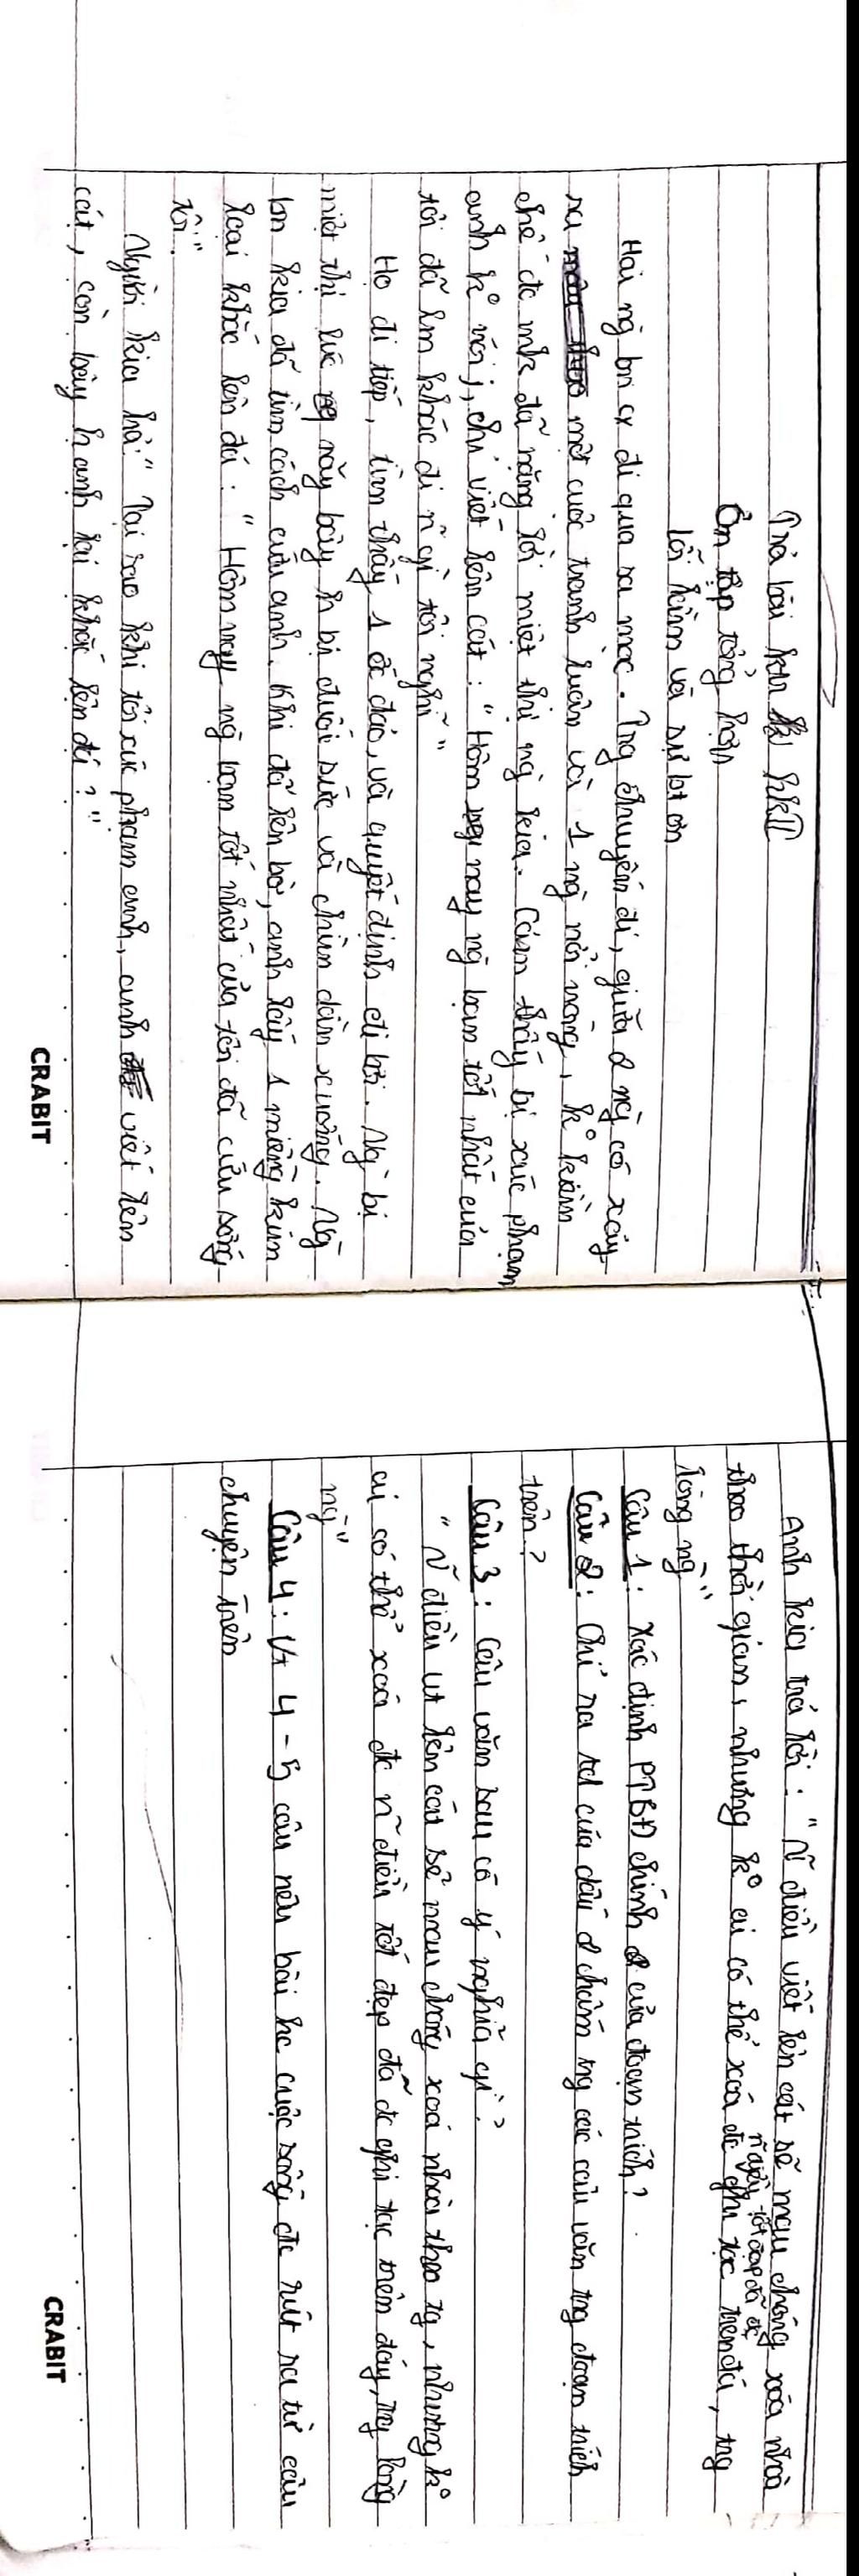 Trả bài ktra hkI
Ôn tập tổng hợp
lỗi lầm và sự bt ơn
Hai ng bn cx đi qua sa mạc. Trg chuyến đi, giữa 2 ng có xảy
ra một cuộc tranh luận và 1 ng nổi nóng, k° kiềm
chế đc mk đã nặng lời miệt thị ng kia. Cảm thấy bị xúc phạm
anh k° nói j, chỉ viết lên cát: "Hôm nay ng bạn tốt nhất của
tôi đã lm khác đi n~ gì tôi nghĩ"
Họ đi tiếp, tìm thấy 1 ốc đảo, và quyết định đi bơi. Ng bị
miệt thị lúc nãy bây h bị đuối sức và chìm dần xuống. Ng
bn kia đã tìm cách cứu anh. Khi đã lên bờ, anh lấy 1 miếng kim
loại khắc lên đá: "Hôm nay ng bạn tốt nhất của tôi đã cứu sống
tôi"
Người kia hỏi "Tại sao khi tôi xúc phạm anh, anh viết lên
cát, còn bây h anh lại khắc lên đá?"
CRABIT
Anh kia trả lời: "N~ điều viết lên cát sẽ mau chóng xóa nhòa
theo thời gian, nhưng k° ai có thể xoá đc n~ điều tốt đẹp đã đc ghi tạc trên đá, trg
lòng ng"
Câu 1: Xác định PTBĐ chính của đoạn trích?
Câu 2: Chỉ ra td của dấu 2 chấm trg các câu văn trg đoạn trích
trên?
Câu 3: Câu văn sau có ý nghĩa gì?
"N~ điều vt lên cát sẽ mau chóng xoá nhòa theo tg, nhưng k°
ai có thể xoá đc n~ điều tốt đẹp đã đc ghi tạc trên đáy, trg lòng
ng"
Câu 4: Vt 4-5 câu nêu bài hc cuộc sống đc rút ra từ câu
chuyện trên
CRABIT